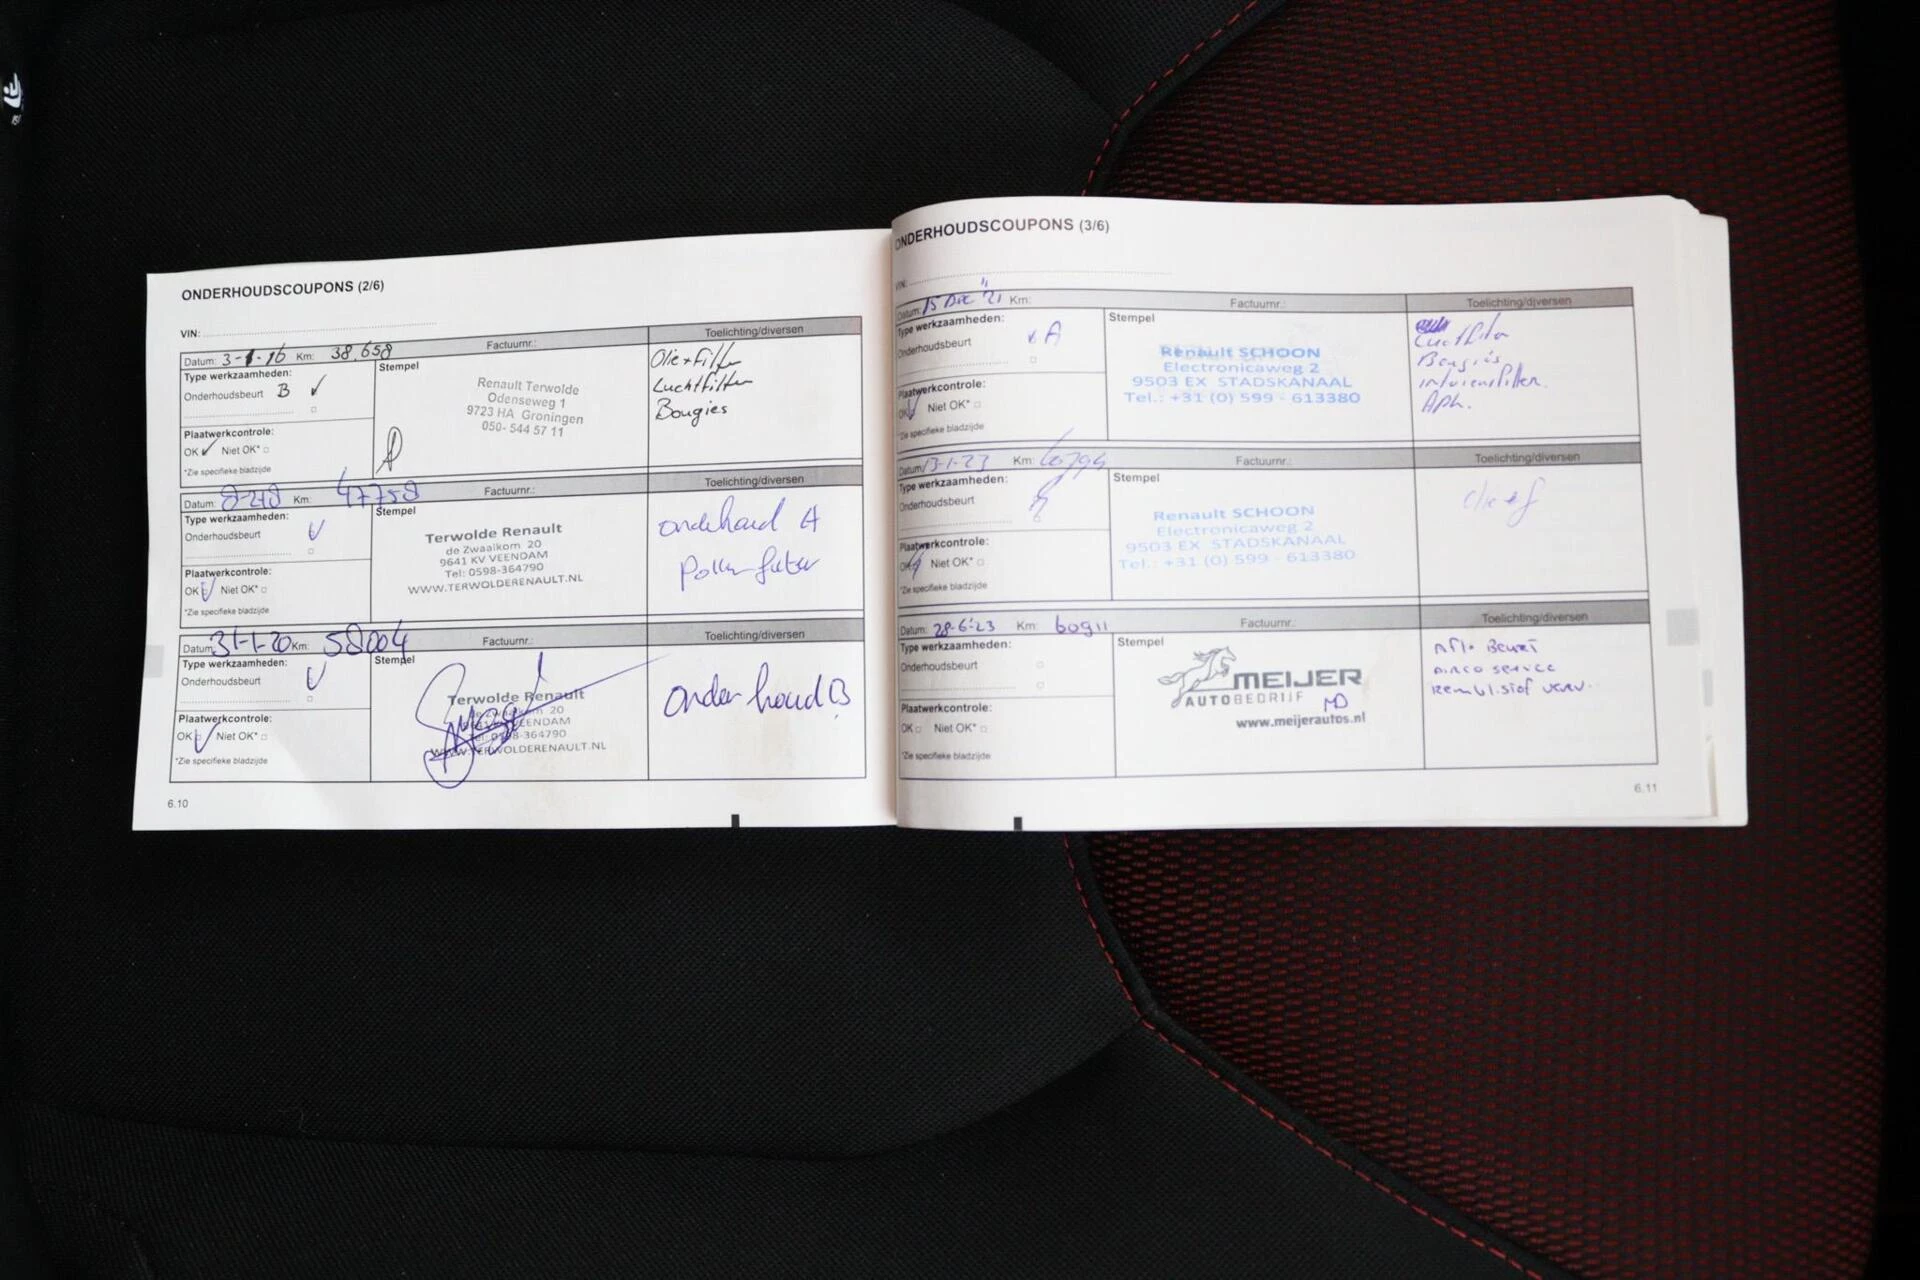 ONDERHOUDSCOUPONS (2/6)
VIN:
Datum: 3-1-16 Km: 38.658 Factuurnr.: Toelichting/diversen
Type werkzaamheden:
Onderhoudsbeurt B
Stempel
Renault Terwolde
Odenseweg 1
9723 HA Groningen
050- 544 57 11
Olie+filter
Luchtfilter
Bougies
Plaatwerkcontrole:
OK Niet OK*
*Zie specifieke bladzijde
Datum: Km: 47758 Factuurnr.: Toelichting/diversen
Type werkzaamheden:
Onderhoudsbeurt
Stempel
Terwolde Renault
de Zwaaikom 20
9641 KV VEENDAM
Tel: 0598-364790
WWW.TERWOLDERENAULT.NL
onderhoud A
Pollenfilter
Plaatwerkcontrole:
OK Niet OK*
*Zie specifieke bladzijde
Datum: 31-1-20 Km: 58004 Factuurnr.: Toelichting/diversen
Type werkzaamheden:
Onderhoudsbeurt
Stempel
Terwolde Renault
de Zwaaikom 20
9641 KV VEENDAM
Tel: 0598-364790
WWW.TERWOLDERENAULT.NL
Onderhoud B
Plaatwerkcontrole:
OK Niet OK*
*Zie specifieke bladzijde
6.10
ONDERHOUDSCOUPONS (3/6)
VIN:
Datum: 15 Dec '21 Km: Factuurnr.: Toelichting/diversen
Type werkzaamheden:
Onderhoudsbeurt A
Stempel
Renault SCHOON
Electronicaweg 2
9503 EX STADSKANAAL
Tel.: +31 (0) 599 - 613380
Luchtfilter
Bougies
Interieurfilter.
Apk.
Plaatwerkcontrole:
OK Niet OK*
*Zie specifieke bladzijde
Datum: 13-1-23 Km: Factuurnr.: Toelichting/diversen
Type werkzaamheden:
Onderhoudsbeurt
Stempel
Renault SCHOON
Electronicaweg 2
9503 EX STADSKANAAL
Tel.: +31 (0) 599 - 613380
Plaatwerkcontrole:
OK Niet OK*
*Zie specifieke bladzijde
Datum: 28-6-23 Km: 60911 Factuurnr.: Toelichting/diversen
Type werkzaamheden:
Onderhoudsbeurt
Stempel
MEIJER
AUTOBEDRIJF
www.meijerautos.nl
Afl. Beurt
Airco service
Remvlstof verv.
Plaatwerkcontrole:
OK Niet OK*
*Zie specifieke bladzijde
6.11